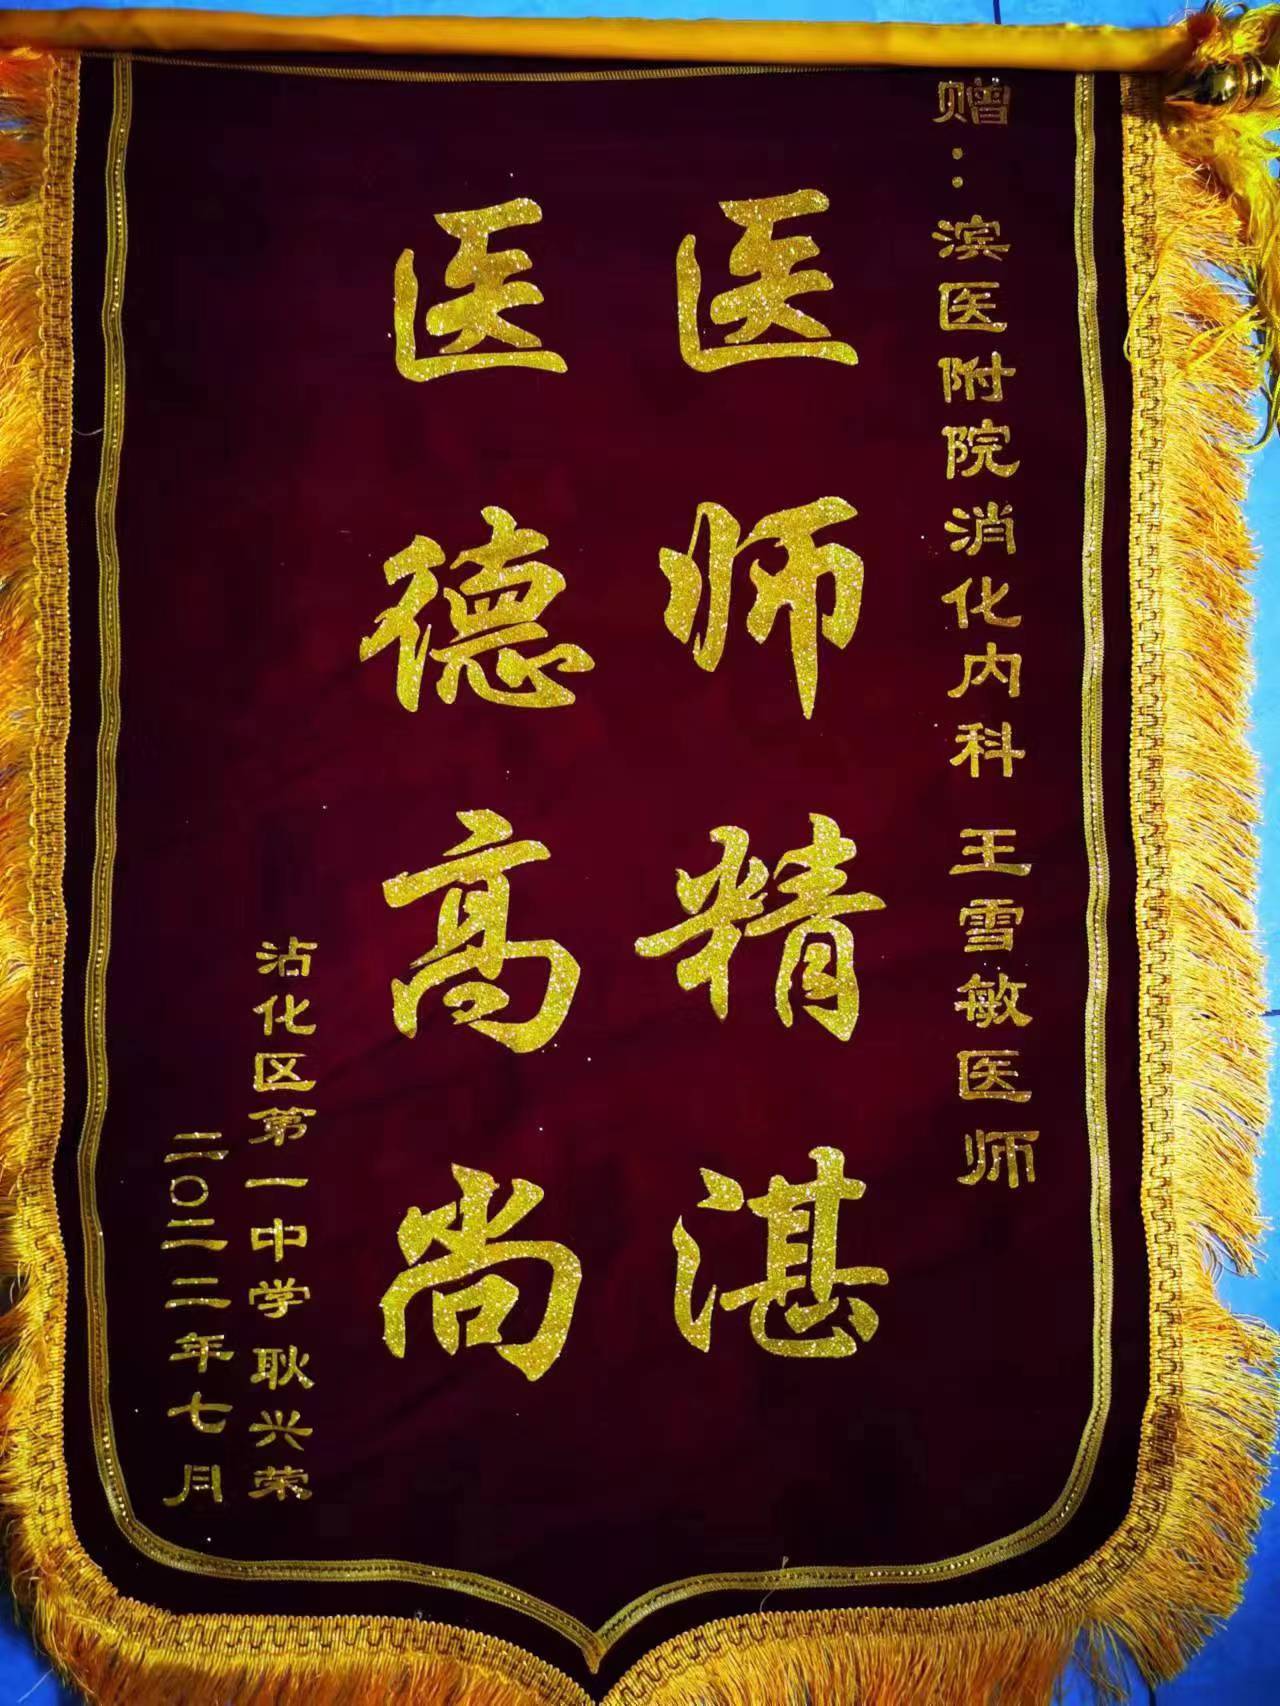 赠：滨医附院消化内科 王雪敏医师
医师精湛
医德高尚
沾化区第一中学 耿兴荣
二〇二二年七月